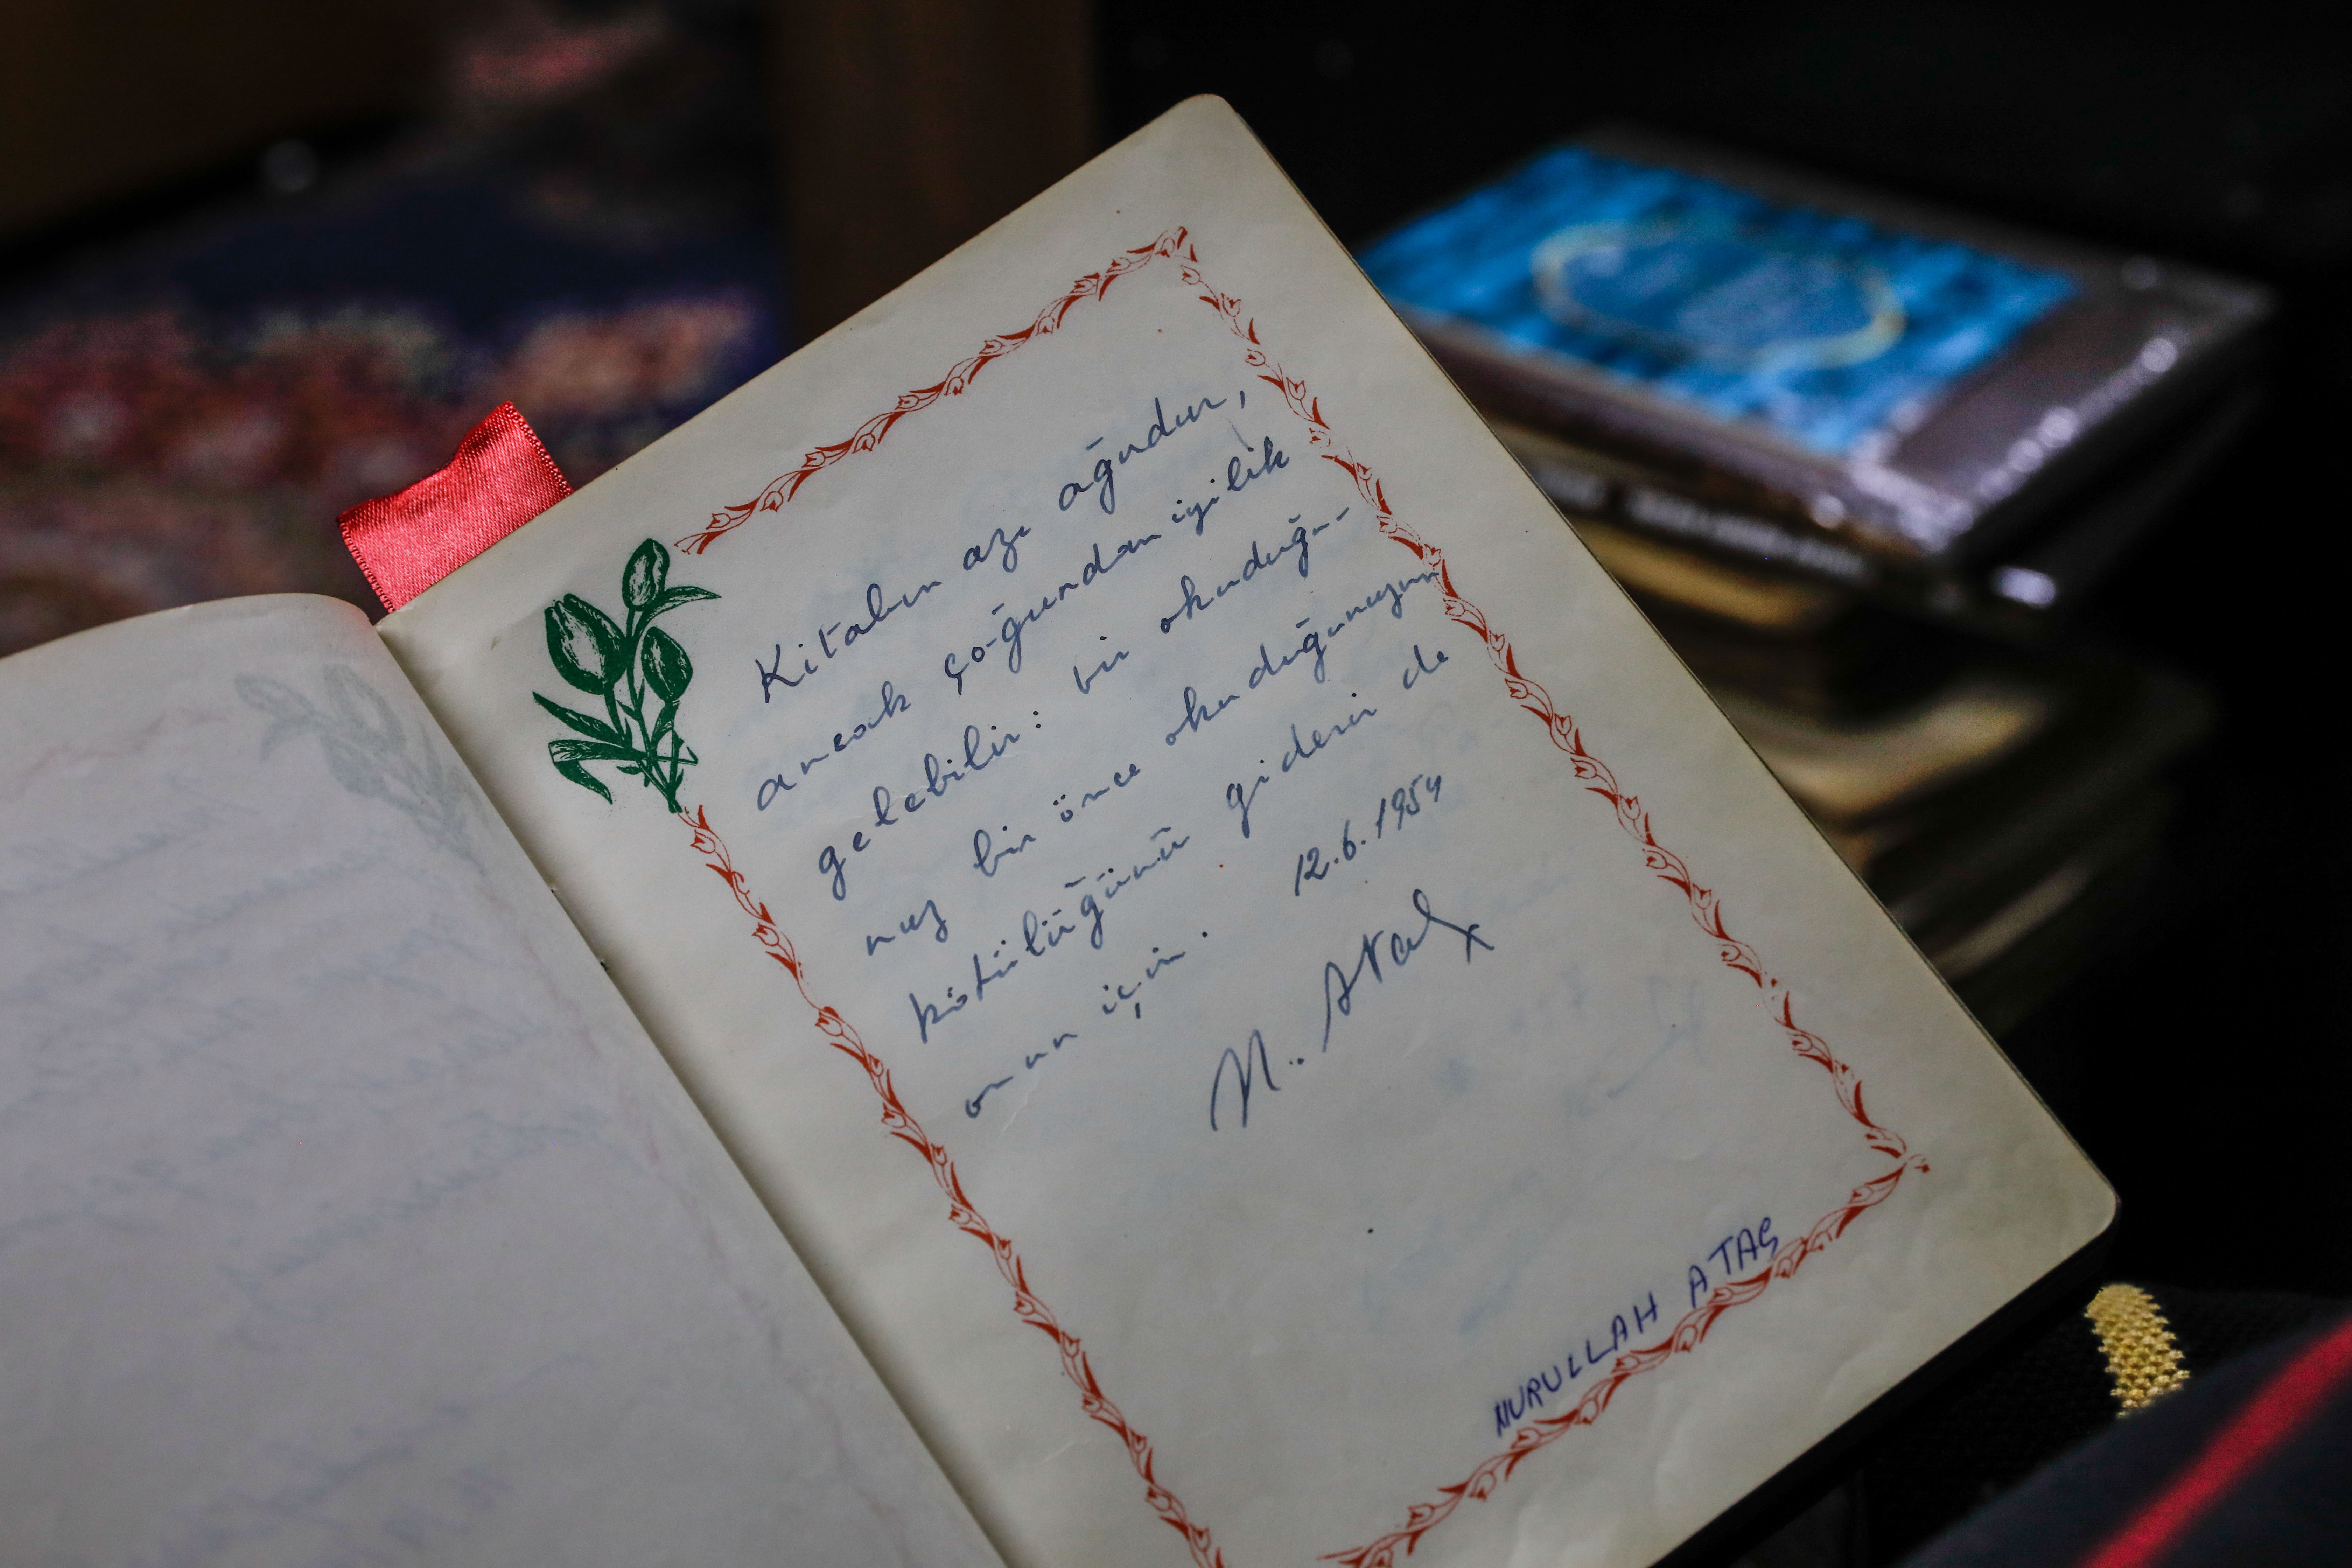 Kitabın azı ağudur,
ancak çoğundan iyilik
gelebilir: bir okuduğu-
nuz bir önce okuduğunuzun
kötülüğünü giderir de
onun için.
12.6.1954
N. Ataç
NURULLAH ATAÇ